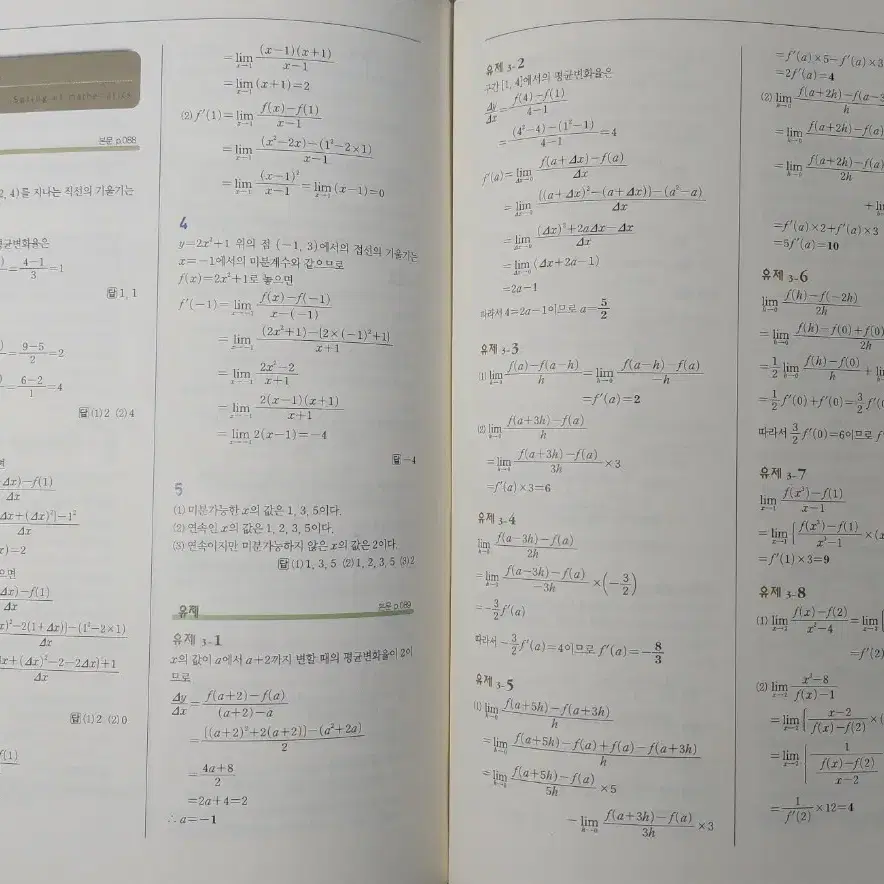 본문 p.088
2, 4)를 지나는 직선의 기울기는
평균변화율은
=\frac{4-1}{3}=1
답 1, 1
=\frac{9-5}{2}=2
=\frac{6-2}{1}=4
답 (1) 2 (2) 4
Δx)-f(1)
Δx
Δx+(Δx)²]-1²
Δx
x)=2
으면
Δx)-f(1)
Δx
x)²-2(1+Δx)]-(1²-2×1)
Δx
x+(Δx)²-2-2Δx]+1
Δx
답 (1) 2 (2) 0
f(1)
=\lim_{x→1}\frac{(x-1)(x+1)}{x-1}
=\lim_{x→1}(x+1)=2
(2) f'(1)=\lim_{x→1}\frac{f(x)-f(1)}{x-1}
=\lim_{x→1}\frac{(x²-2x)-(1²-2×1)}{x-1}
=\lim_{x→1}\frac{(x-1)²}{x-1}=\lim_{x→1}(x-1)=0
4
y=2x²+1 위의 점 (-1, 3)에서의 접선의 기울기는
x=-1에서의 미분계수와 같으므로
f(x)=2x²+1로 놓으면
f'(-1)=\lim_{x→-1}\frac{f(x)-f(-1)}{x-(-1)}
=\lim_{x→-1}\frac{(2x²+1)-{2×(-1)²+1}}{x+1}
=\lim_{x→-1}\frac{2x²-2}{x+1}
=\lim_{x→-1}\frac{2(x-1)(x+1)}{x+1}
=\lim_{x→-1}2(x-1)=-4
답 -4
5
(1) 미분가능한 x의 값은 1, 3, 5이다.
(2) 연속인 x의 값은 1, 2, 3, 5이다.
(3) 연속이지만 미분가능하지 않은 x의 값은 2이다.
답 (1) 1, 3, 5 (2) 1, 2, 3, 5 (3) 2
유제 본문 p.089
유제 3-1
x의 값이 a에서 a+2까지 변할 때의 평균변화율이 2이
므로
\frac{Δy}{Δx}=\frac{f(a+2)-f(a)}{(a+2)-a}
=\frac{{(a+2)²+2(a+2)}-(a²+2a)}{2}
=\frac{4a+8}{2}
=2a+4=2
∴ a=-1
유제 3-2
구간 [1, 4]에서의 평균변화율은
\frac{Δy}{Δx}=\frac{f(4)-f(1)}{4-1}
=\frac{(4²-4)-(1²-1)}{4-1}=4
f'(a)=\lim_{Δx→0}\frac{f(a+Δx)-f(a)}{Δx}
=\lim_{Δx→0}\frac{{(a+Δx)²-(a+Δx)}-(a²-a)}{Δx}
=\lim_{Δx→0}\frac{(Δx)²+2aΔx-Δx}{Δx}
=\lim_{Δx→0}(Δx+2a-1)
=2a-1
따라서 4=2a-1이므로 a=\frac{5}{2}
유제 3-3
(1) \lim_{h→0}\frac{f(a)-f(a-h)}{h}=\lim_{h→0}\frac{f(a-h)-f(a)}{-h}
=f'(a)=2
(2) \lim_{h→0}\frac{f(a+3h)-f(a)}{h}
=\lim_{h→0}\frac{f(a+3h)-f(a)}{3h}×3
=f'(a)×3=6
유제 3-4
\lim_{h→0}\frac{f(a-3h)-f(a)}{2h}
=\lim_{h→0}\frac{f(a-3h)-f(a)}{-3h}×(-\frac{3}{2})
=-\frac{3}{2}f'(a)
따라서 -\frac{3}{2}f'(a)=4이므로 f'(a)=-\frac{8}{3}
유제 3-5
(1) \lim_{h→0}\frac{f(a+5h)-f(a+3h)}{h}
=\lim_{h→0}\frac{f(a+5h)-f(a)+f(a)-f(a+3h)}{h}
=\lim_{h→0}\frac{f(a+5h)-f(a)}{5h}×5
-\lim_{h→0}\frac{f(a+3h)-f(a)}{3h}×3
=f'(a)×5-f'(a)×3
=2f'(a)=4
(2) \lim_{h→0}\frac{f(a+2h)-f(a-3}{h}
=\lim_{h→0}\frac{f(a+2h)-f(a)}{h}
=\lim_{h→0}\frac{f(a+2h)-f(a)}{2h}
+\lim
=f'(a)×2+f'(a)×3
=5f'(a)=10
유제 3-6
\lim_{h→0}\frac{f(h)-f(-2h)}{2h}
=\lim_{h→0}\frac{f(h)-f(0)+f(0)}{2h}
=\frac{1}{2}\lim_{h→0}\frac{f(h)-f(0)}{h}+\lim
=\frac{1}{2}f'(0)+f'(0)=\frac{3}{2}f'(
따라서 \frac{3}{2}f'(0)=6이므로 f
유제 3-7
\lim_{x→1}\frac{f(x³)-f(1)}{x-1}
=\lim_{x→1}{\frac{f(x³)-f(1)}{x³-1}×(x
=f'(1)×3=9
유제 3-8
(1) \lim_{x→2}\frac{f(x)-f(2)}{x²-4}=\lim_{x→2}{
=f'(2)
(2) \lim_{x→2}\frac{x³-8}{f(x)-1}
=\lim_{x→2}{\frac{x-2}{f(x)-f(2)}×(
=\lim_{x→2}{\frac{1}{\frac{f(x)-f(2)}{x-2}}
=\frac{1}{f'(2)}×12=4